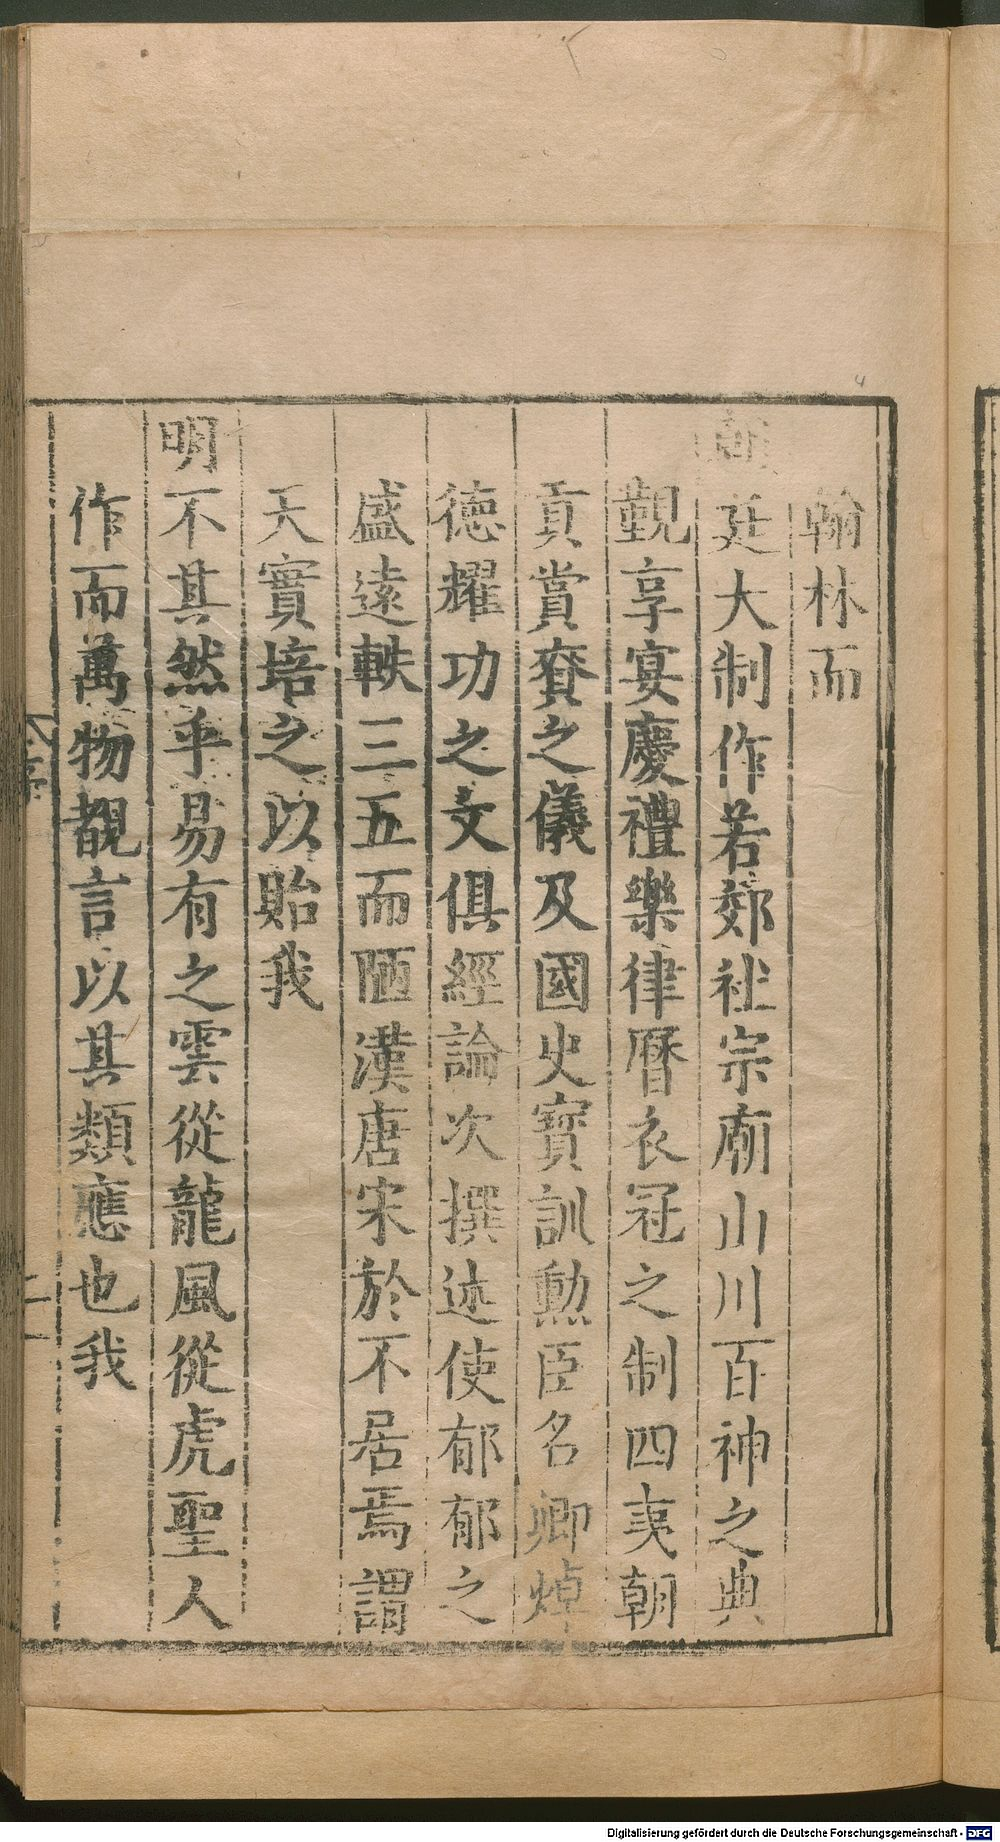 翰林而
朝廷大制作若郊社宗廟山川百神之典
覲享宴慶禮樂律曆衣冠之制四夷朝
貢賞賚之儀及國史寶訓勲臣名卿焯
德耀功之文俱經論次撰述使郁郁之
盛遠軼三五而陋漢唐宋於不居焉謂
天實培之以貽我
明不其然乎易有之雲從龍風從虎聖人
作而萬物覩言以其類應也我
序
二
4
Digitalisierung gefördert durch die Deutsche Forschungsgemeinschaft - DFG